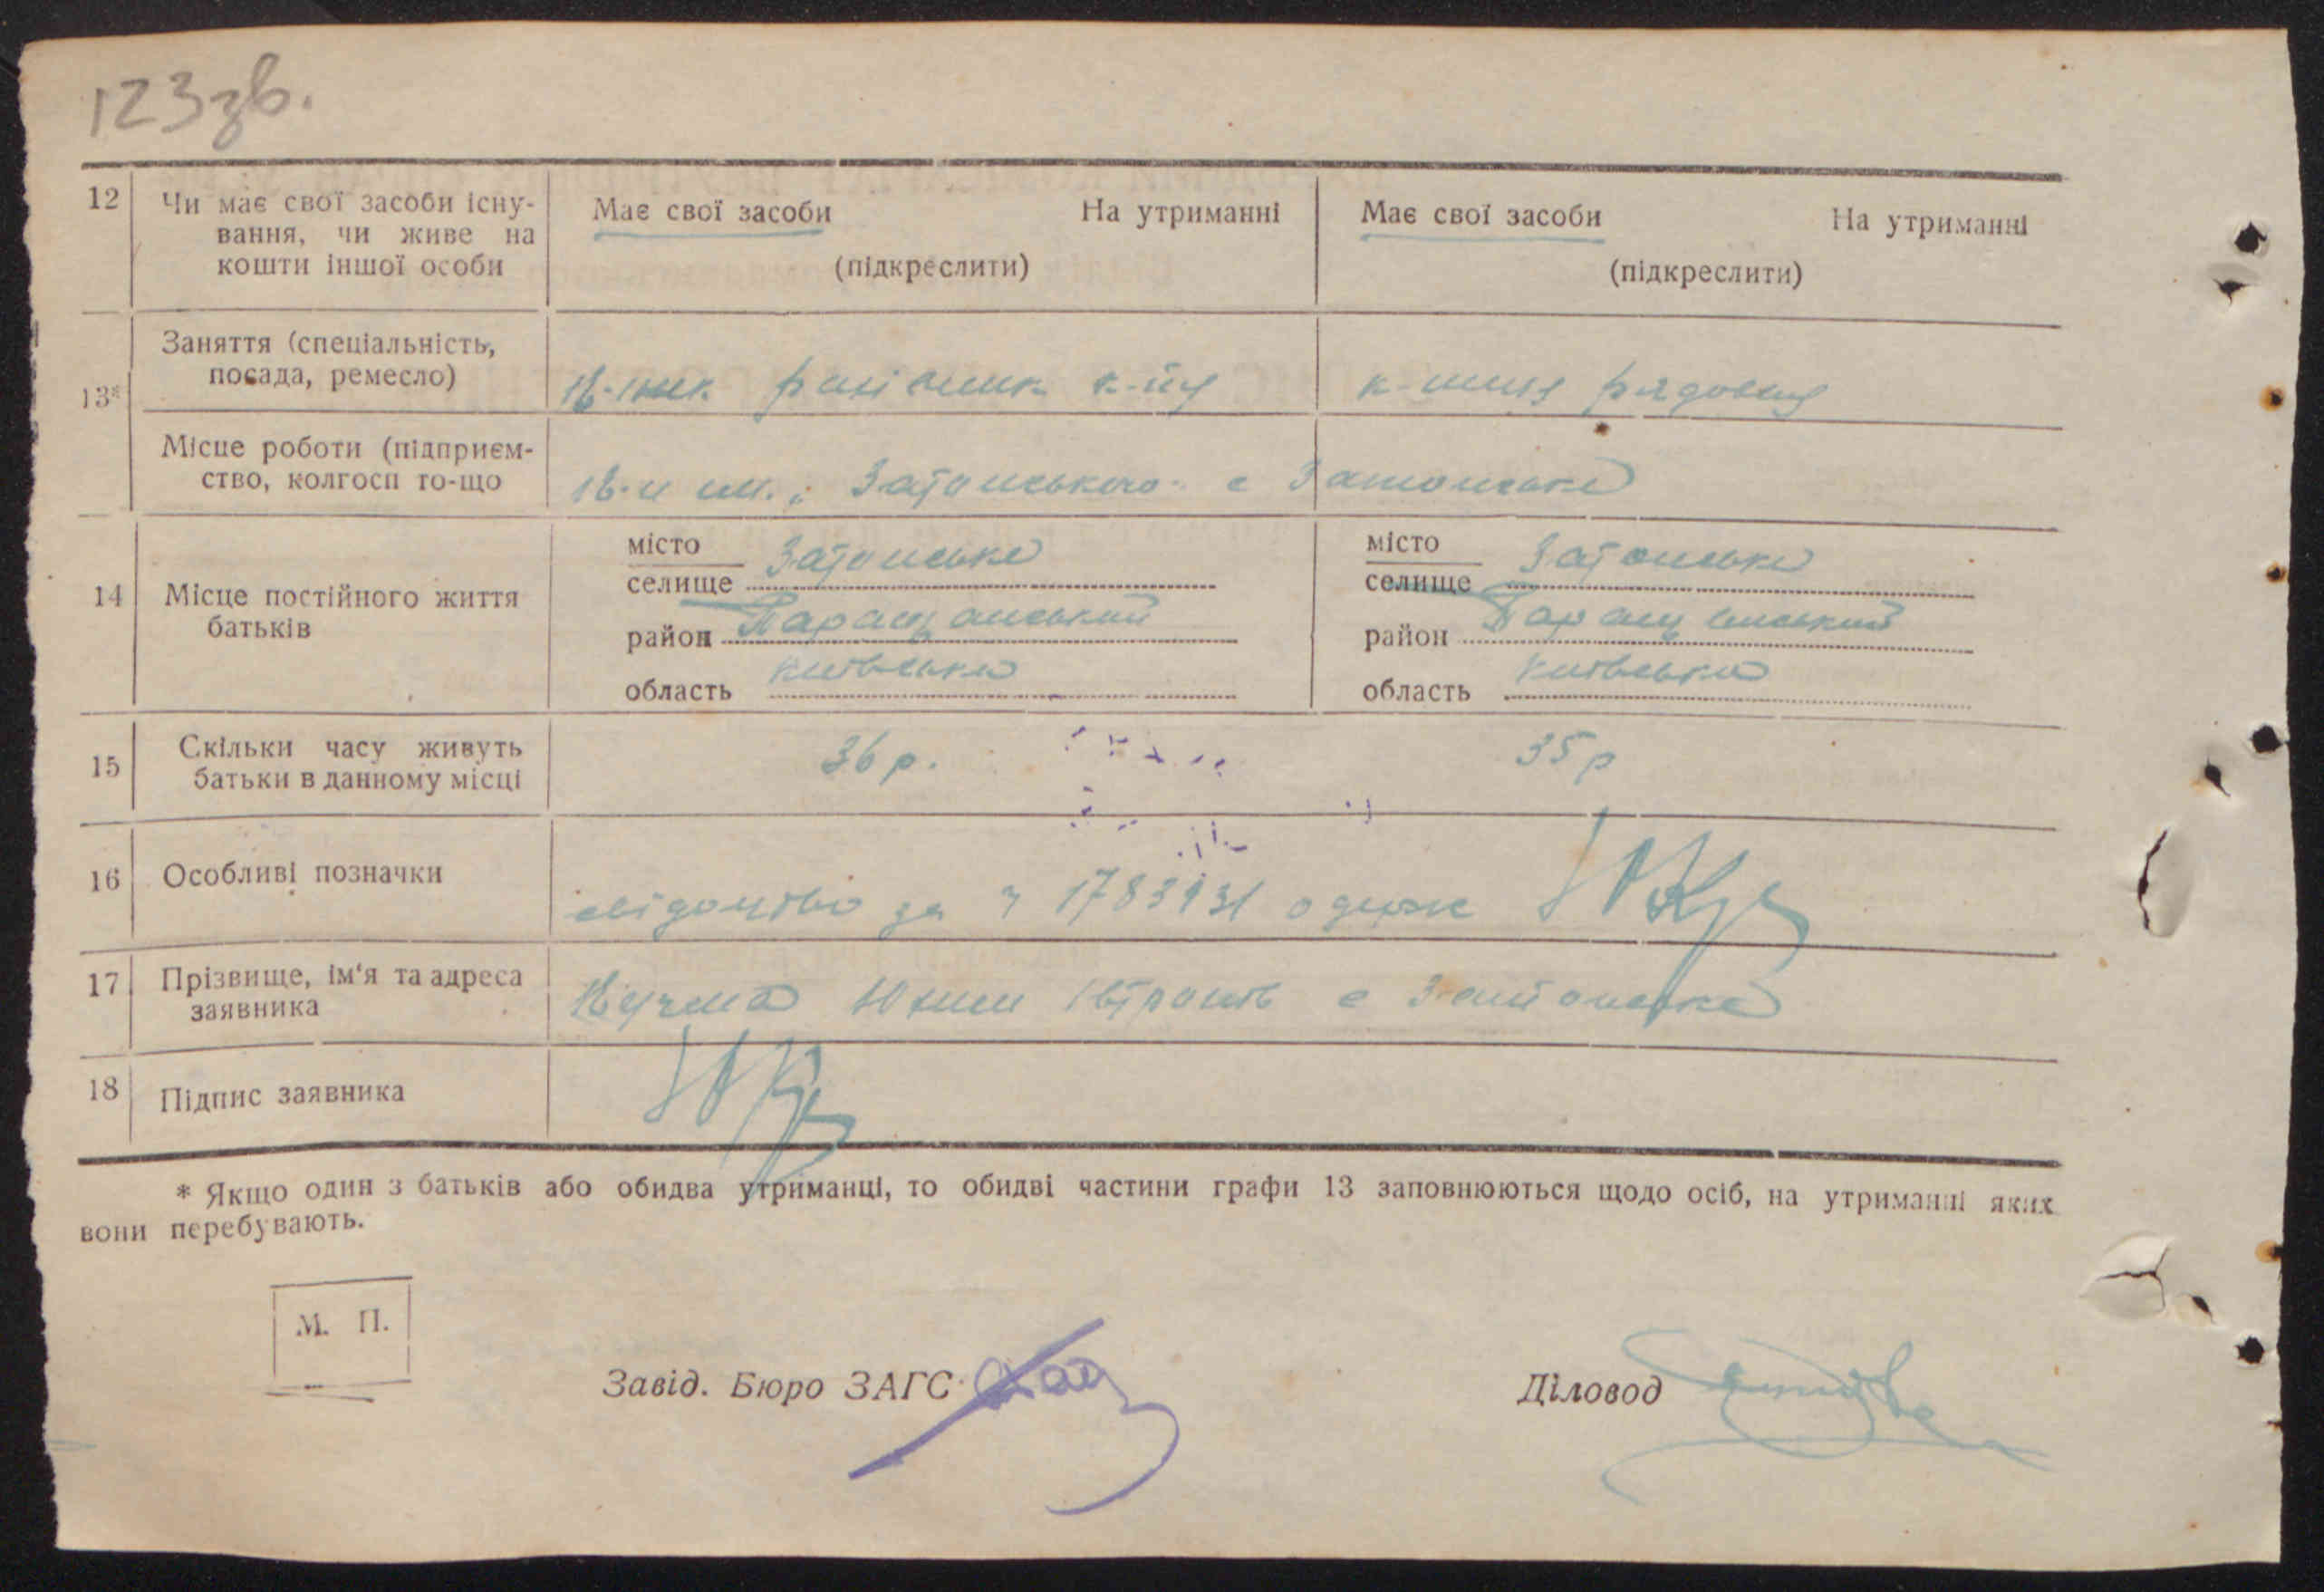 123зв.
12 Чи має свої засоби існу-
вання, чи живе на
кошти іншої особи
Має свої засоби На утриманні
(підкреслити)
Має свої засоби На утриманні
(підкреслити)
13*
Заняття (спеціальність,
посада, ремесло)
к-ник
к-ця рядова
Місце роботи (підприєм-
ство, колгосп то-що
Затонського с Затонське
14 Місце постійного життя
батьків
місто
селище Затонське
район Таращанський
область київська
місто
селище Затонське
район Таращанський
область київська
15 Скільки часу живуть
батьки в данному місці
36 р.
35 р
16 Особливі позначки
свідоцтво за 1783931 одерж
17 Прізвище, ім'я та адреса
заявника
с Затонське
18 Підпис заявника
* Якщо один з батьків або обидва утриманці, то обидві частини графи 13 заповнюються щодо осіб, на утриманні яких
вони перебувають.
М. П.
Завід. Бюро ЗАГС
Діловод